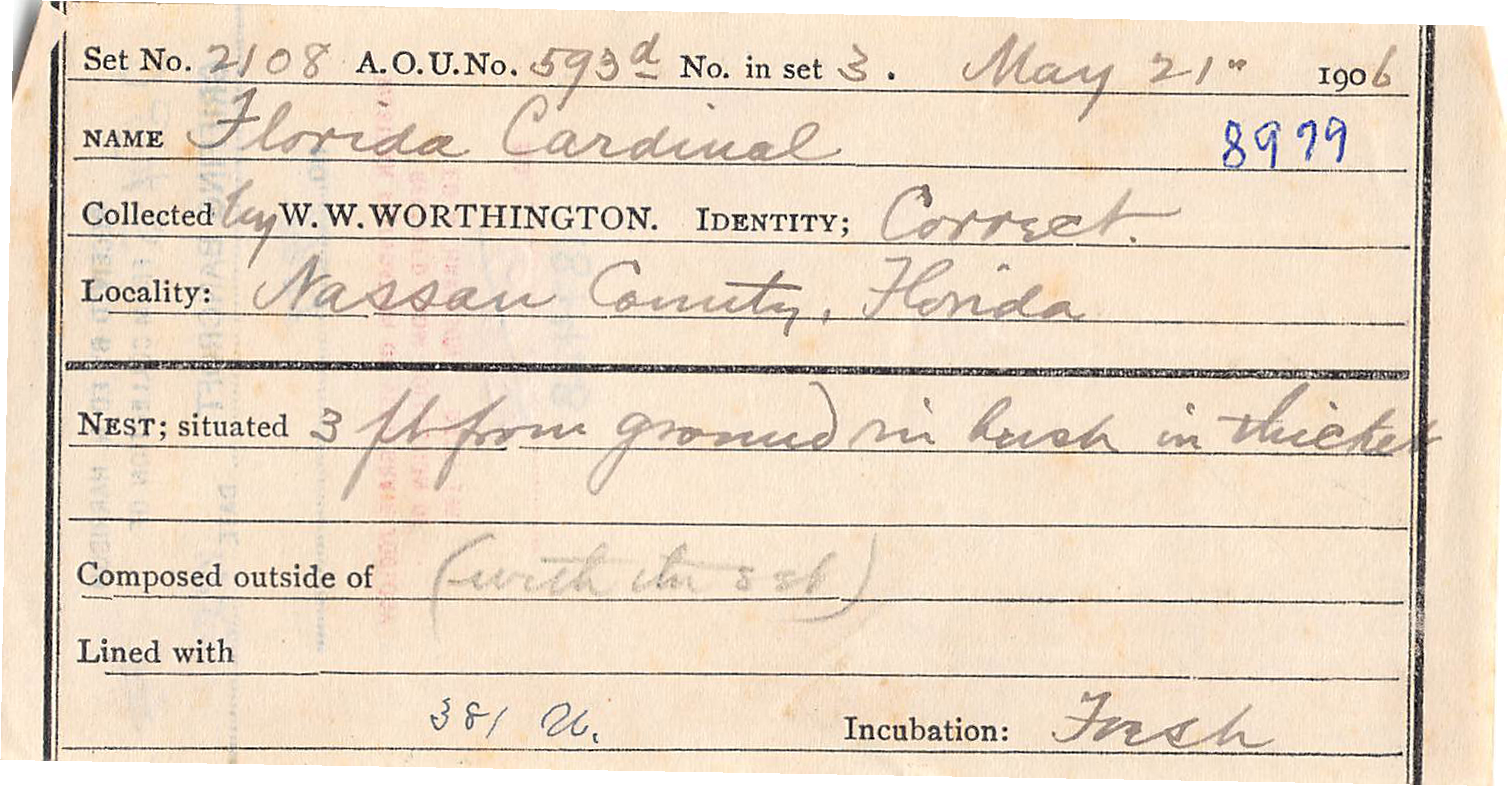 Set No. 2108 A.O.U.No. 593d No. in set 3. May 21" 1906
NAME Florida Cardinal 8979
Collected by W.W.WORTHINGTON. IDENTITY; Correct.
Locality: Nassau County, Florida
NEST; situated 3 ft from ground in bush in thicket
Composed outside of (with the set)
Lined with
381 Incubation: Fresh